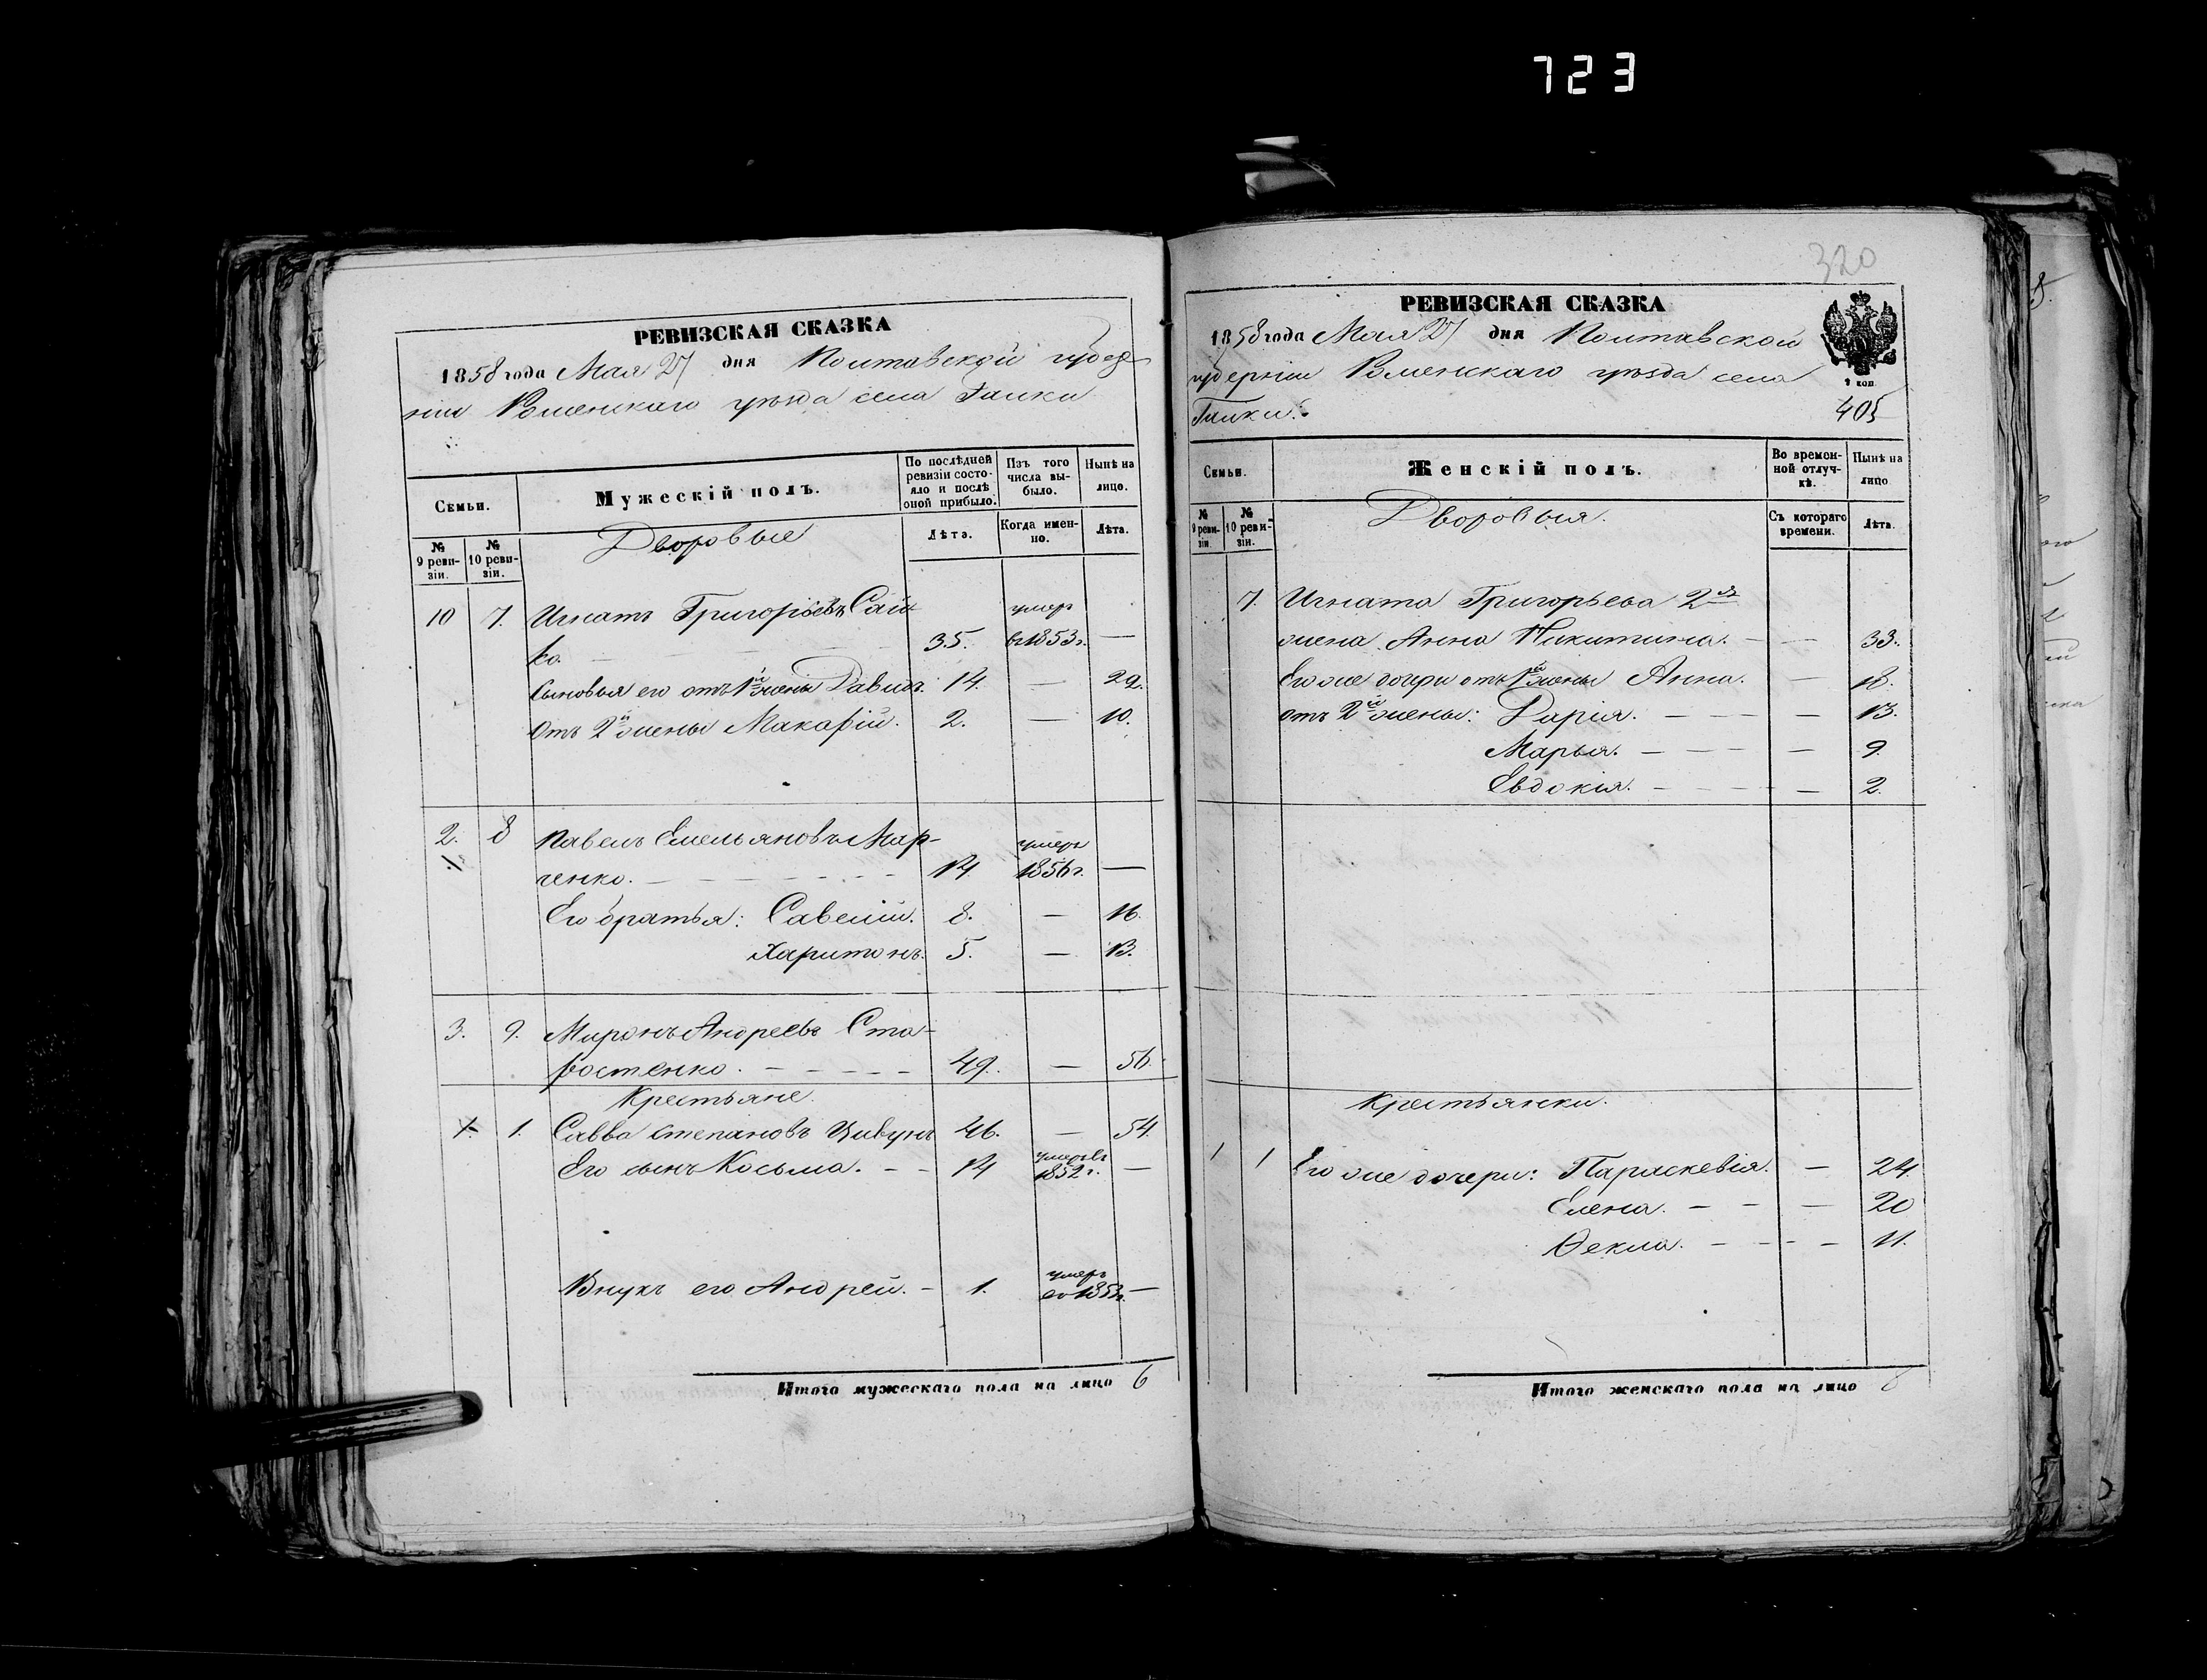 723
РЕВИЗСКАЯ СКАЗКА
1858 года Мая 27 дня Полтавской губер
ніи Роменскаго уѣзда села Галки
Семьи.
Мужескій полъ.
По послѣдней ревизіи состояло и послѣ оной прибыло.
Изъ того числа выбыло.
Нынѣ на лицо.
№ 9 ревизіи.
№ 10 ревизіи.
Дворовые
Лѣта.
Когда именно.
Лѣта.
10 7. Игнатъ Григорьевъ Сай умеръ
ко. 35. въ 1853 г. —
Сыновья его отъ 1й жены Давидъ. 14. — 22.
Отъ 2й жены Макарій. 2. — 10.
2. 8 Павелъ Емельяновъ Мар- умеръ
ченко. 14 1856 г. —
Его братья: Савелій. 8. — 16.
Харитонъ. 5. — 13.
3. 9. Миронъ Андреевъ Ста-
ростенко. 49. — 56.
Крестьяне.
1. 1. Савва Степановъ Цивунъ 46. — 54.
Его сынъ Косьма. 14 умеръ въ 1852 г. —
Внукъ его Андрей. 1. умеръ въ 1853 г. —
Итого мужескаго пола на лицо 6
320
РЕВИЗСКАЯ СКАЗКА
1858 года Мая 27 дня Полтавской
губерніи Роменскаго уѣзда села
Галки.
405
Семьи.
Женскій полъ.
Во временной отлучкѣ.
Нынѣ на лицо
№ 9 ревизіи.
№ 10 ревизіи.
Дворовыя.
Съ котораго времени.
Лѣта.
7. Игната Григорьева 2я
жена Анна Никитина. — 33.
Его же дочери отъ 1й жены Анна. — 18.
отъ 2й жены: Дарія. — 13.
Марья. — 9.
Евдокія. — 2.
Крестьянки.
1 1 Его же дочери: Параскевія. — 24.
Елена. — 20
Ѳекла. — 11.
Итого женскаго пола на лицо 8